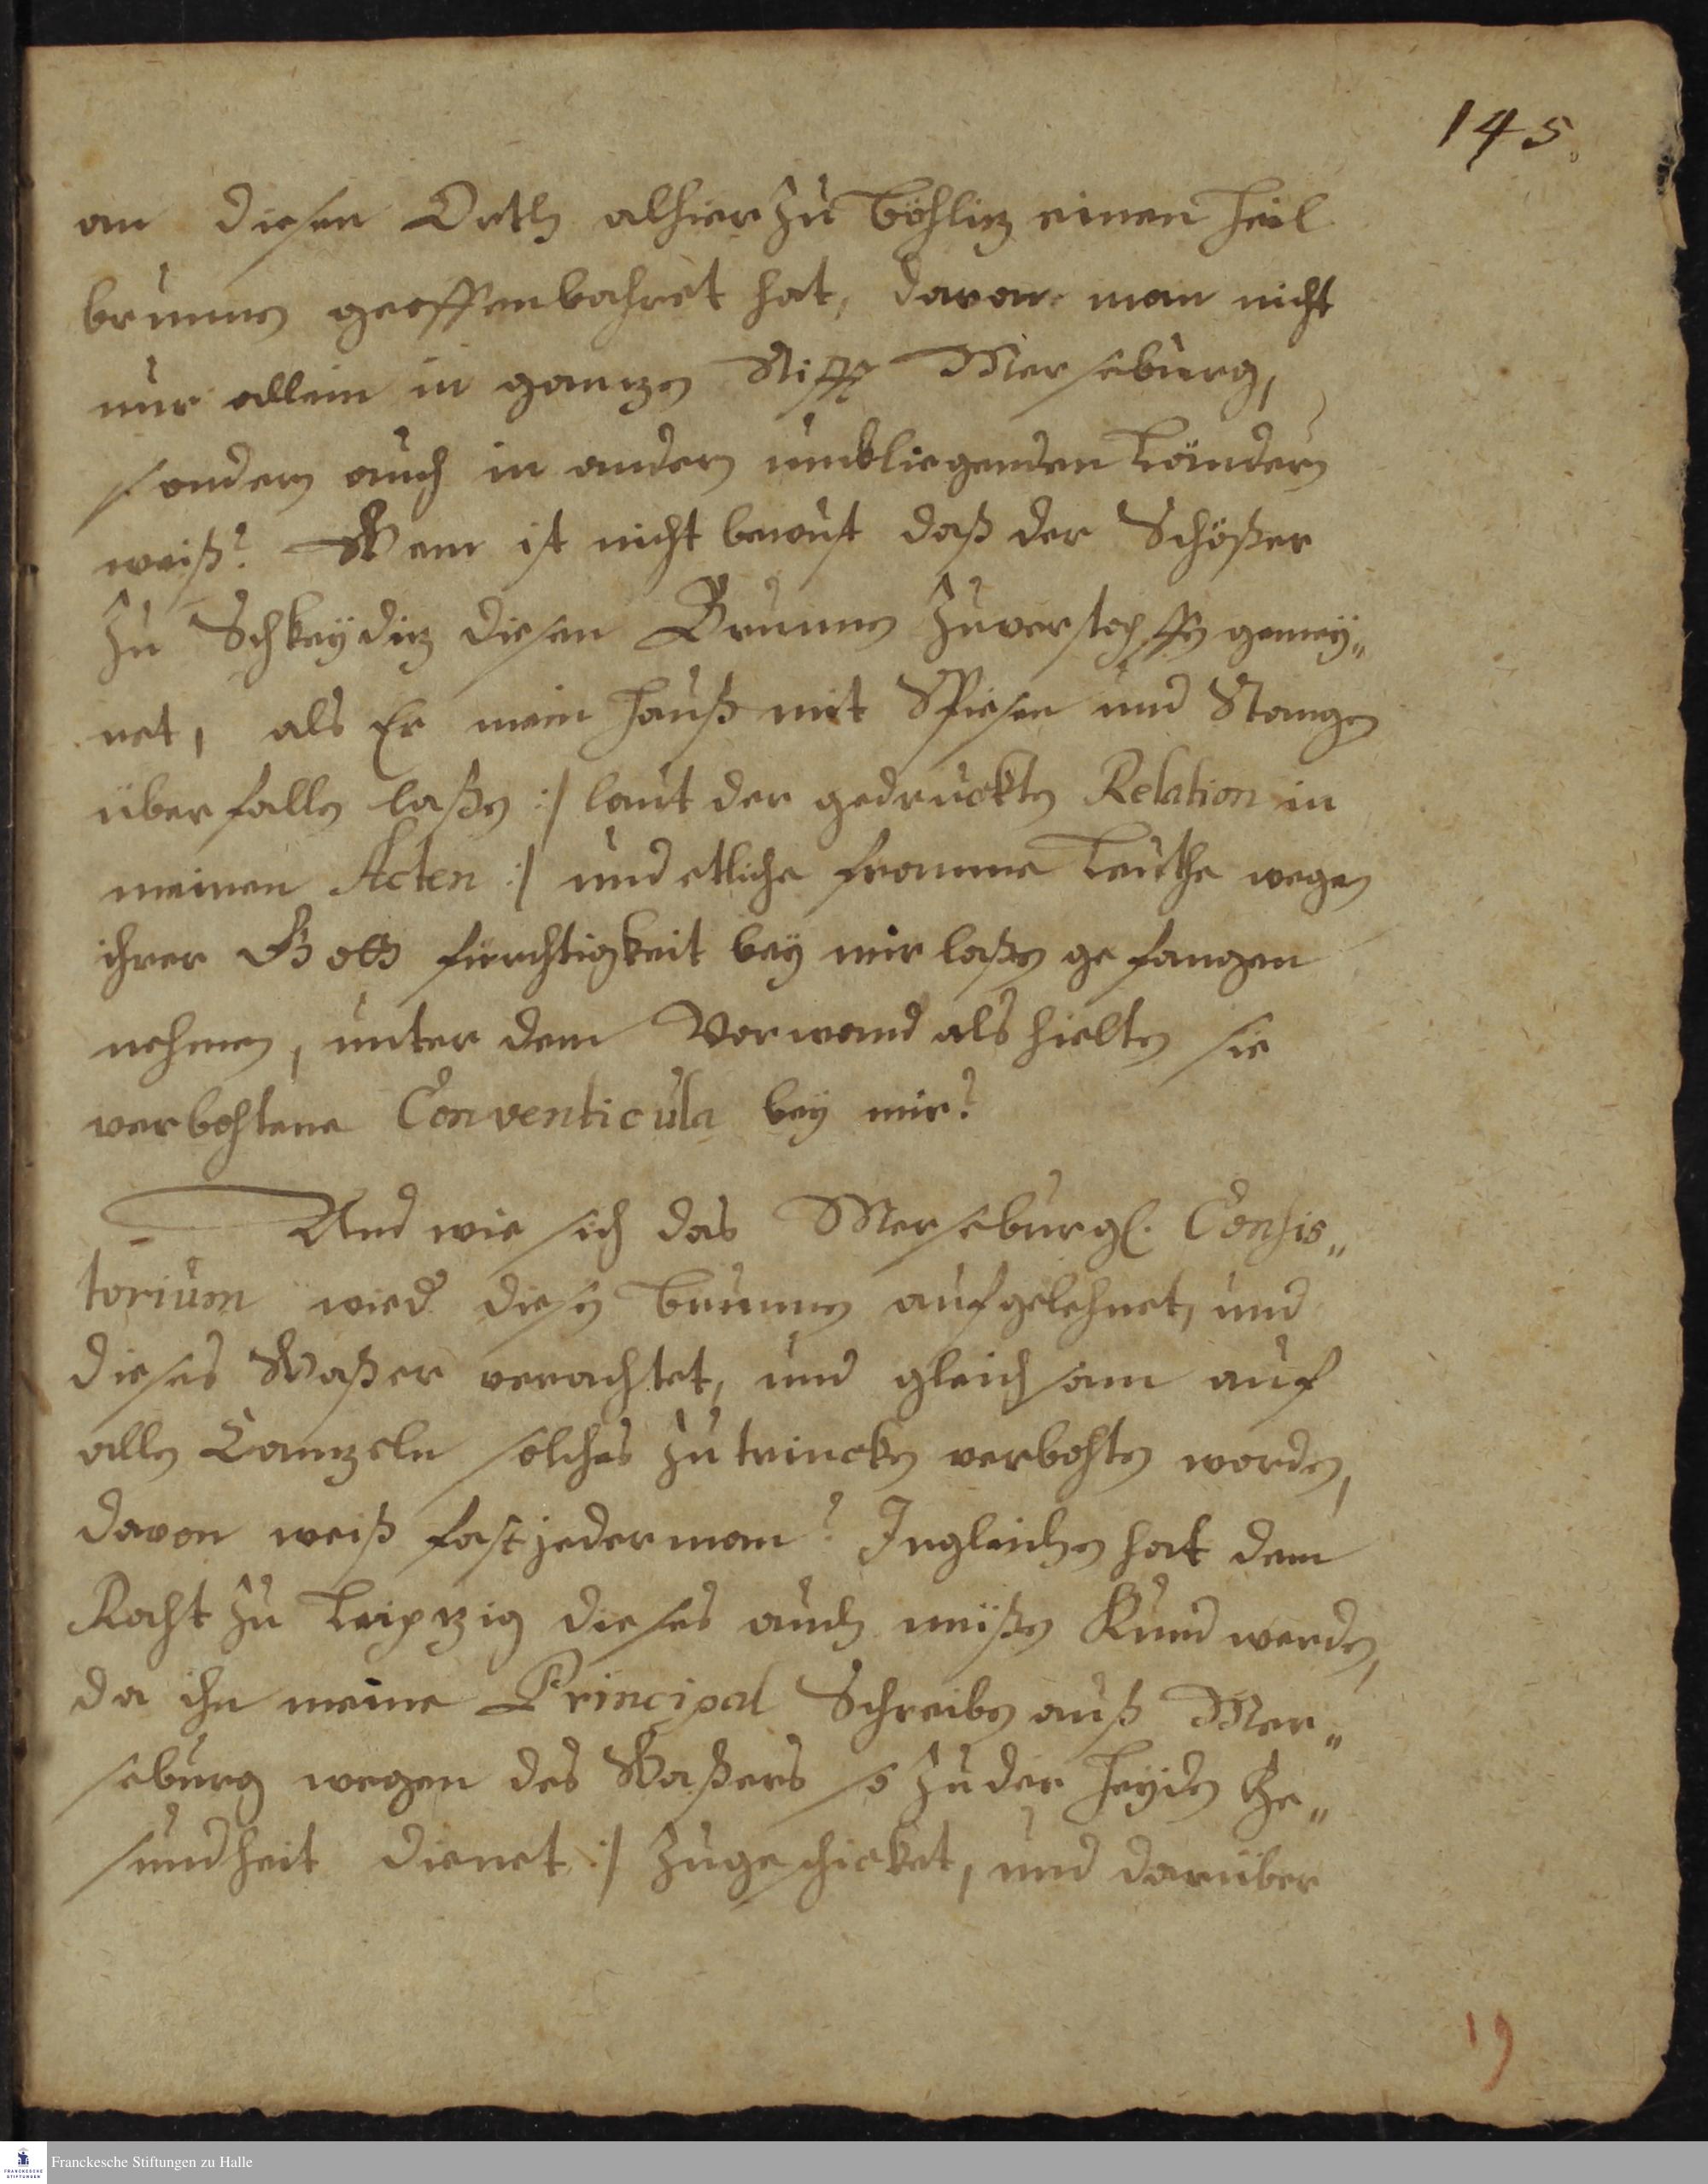 145.
an diesen Orth alhier zu Böhlitz einen Heil
brunnen geoffenbahret hat, davon man nicht
nur allein in gantzen Stifft Merseburg,
sondern auch in andern umbliegenden Ländern
weiß? Wem ist nicht bewust daß der Schößer
zu Schkeyditz diesen Brunnen zuverstopffen gemey„
net, als Er mein Hauß mit Spiesen und Stangen
überfallen laßen :/ laut der gedruckten Relation in
meinen Acten :/ und etliche fromme Leuthe wegen
ihrer Gotts fürchtigkeit bey mir laßen gefangen
nehmen, unter dem Vorwand als hielten sie
verbohtene Conventicula bey mir?
Und wie sich das Merseburgl. Consis„
torium wied diesen Brunnen aufgelehnet, und
dieses Waßer verachtet, und gleichsam auf
allen Cantzeln solches zu trincken verbohten worden,
davon weiß fast jederman? Ingleichen hat dem
Raht zu Leiptzig dieses auch müßen Kund werden,
da ihn meine Principal Schreiben auß Mer„
seburg wegen des Waßers so zu der Heyden Ge„
sundheit dienet :/ zugeschicket, und darüber
19
Franckesche Stiftungen zu Halle
FRANCKESCHE
STIFTUNGEN